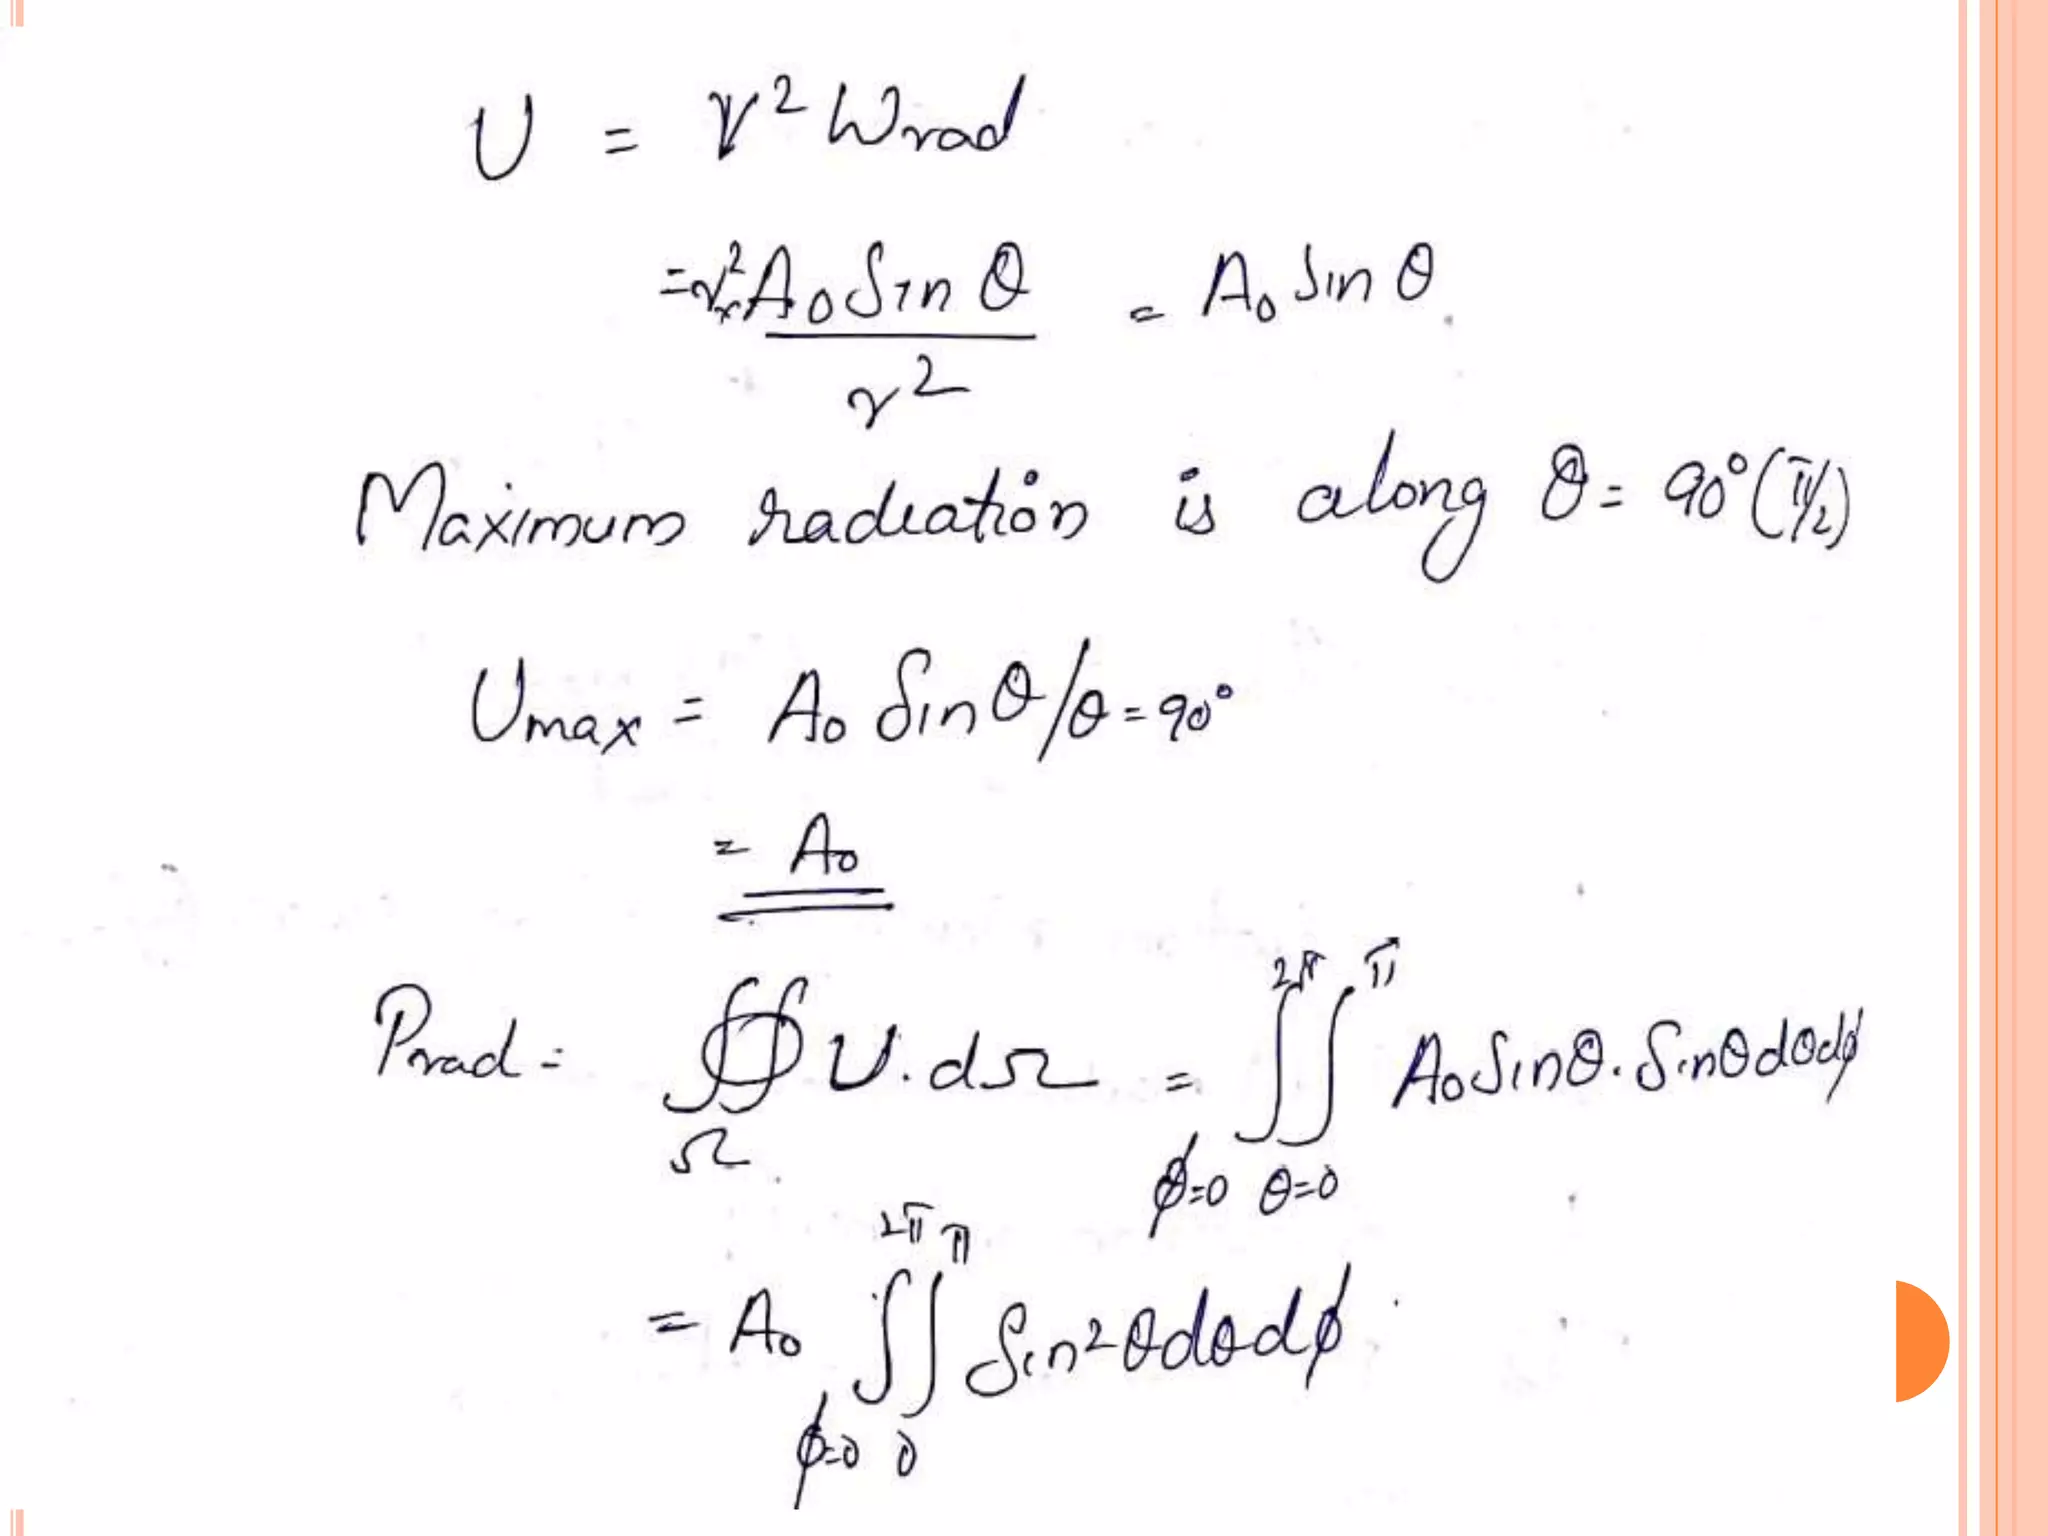 U = r² Wrad
= r² × A₀ Sin θ / r² = A₀ Sin θ
Maximum radiation is along θ = 90° (π/2)
Umax = A₀ Sin θ / θ = 90°
= A₀
Prad = ∯Ω U. dΩ = ∫φ=0^2π ∫θ=0^π A₀ Sinθ. Sinθ dθ dφ
= A₀ ∫φ=0^2π ∫0^π Sin²θ dθ dφ